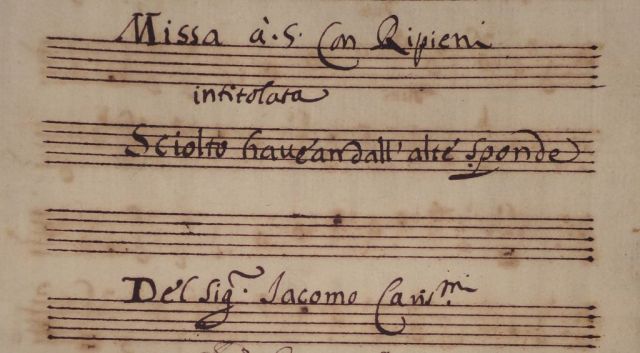 Missa à. 5. Con Ripieni
intitolata
Sciolto haueàn dall' alte sponde
Del Sig.r Iacomo Caris.mi